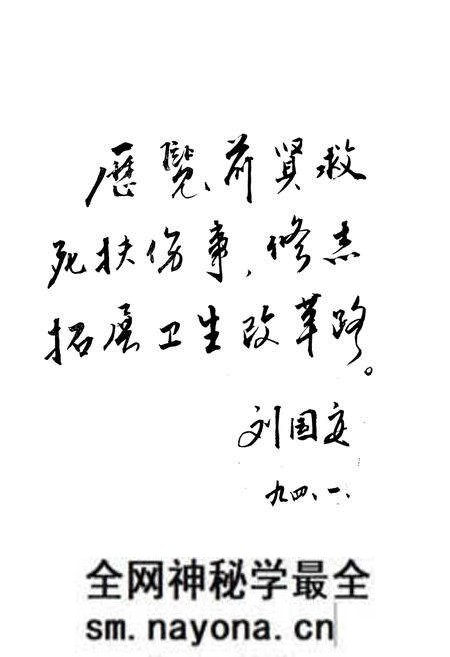 歷覽前贤救
死扶伤事,修志
拓展卫生改革路。
刘国安
九四、一、
全网神秘学最全
sm.nayona.cn